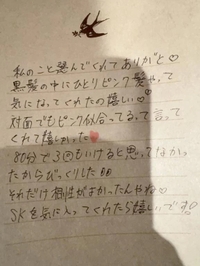 私のこと認んでくれてありがと♡
黒髪の中にひとりピンク髪やって
気になってくれたの嬉しい♡
対面でもピンク似合ってるって言って
くれて嬉しかった❤
80分で3回もいけると思ってなかっ
たからびっくりした
それだけ相性がよかったんやね♡
SKを気に入ってくれたら嬉しいです!